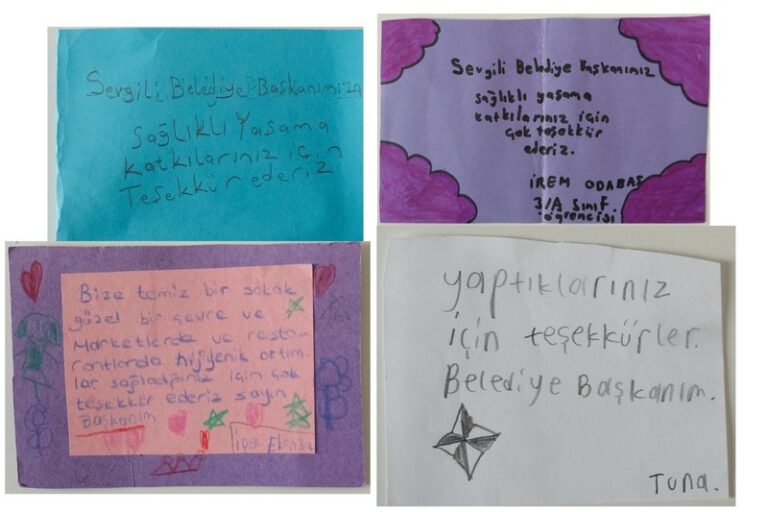 Sevgili Belediye Başkanımıza
Sağlıklı Yaşama
katkılarınız için
Teşekkür ederiz
Sevgili Belediye Başkanımız
sağlıklı yaşama
katkılarınız için
çok teşekkür
ederiz.
İREM ODABAŞ
3/A sınıf
öğrencisi
Bize temiz bir sokak
güzel bir çevre ve
Marketlerde ve resto-
rantlarda hijyenik ortım-
lar sağladığınız için çok
teşekkür ederiz sayın
Başkanım
yaptıklarınız
için teşekkürler.
Belediye Başkanım.
Tuna.